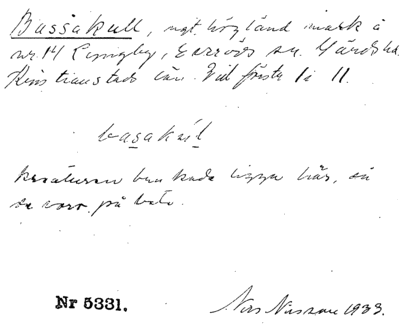 Bassakull, ngt högländ mark å
nr. 14 Lyngby, Everöds sn. Gärds hd.
Kristianstads län. Vid första l i ll.
basakúl
kreaturen brukade ligga här, då
de voro på bete.
Nr 5331. Nils Nilsson 1933.